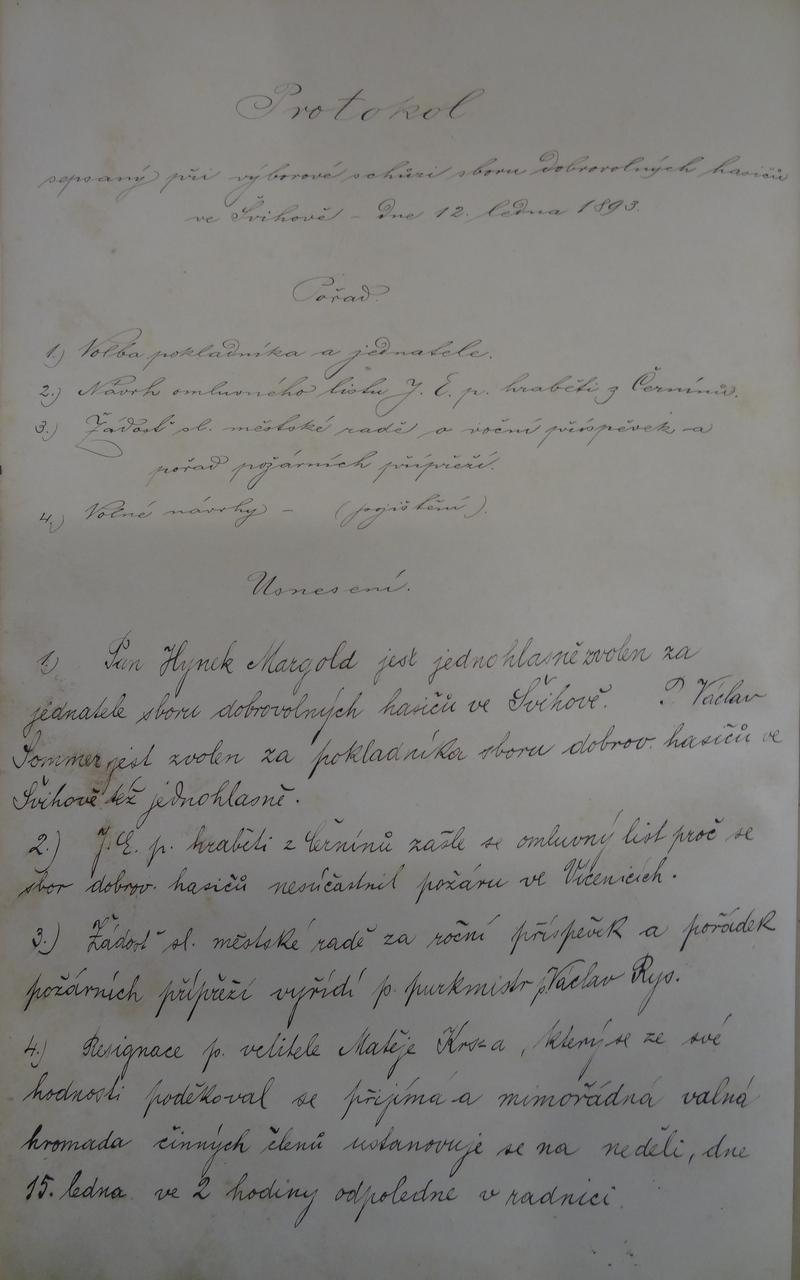 Protokol
sepsaný při výborové schůzi sboru dobrovolných hasičů
ve Švihově – dne 12. ledna 1893.
Pořad.
1.) Volba pokladníka a jednatele.
2.) Návrh omluvného listu J. E. p. hraběti z Černínů.
3.) Žádosť sl. městské radě o roční příspěvek a
pořad požárních přípřeží.
4.) Volné návrhy – (pojištění).
Usnesení.
1) Pan Hynek Margold jest jednohlasně zvolen za
jednatele sboru dobrovolných hasičů ve Švihově. P. Václav
Sommer jest zvolen za pokladníka sboru dobrov. hasičů ve
Švihově též jednohlasně.
2.) J. E. p. hraběti z Černínů zašle se omluvný list proč se
sbor dobrov. hasičů nesúčastnil požáru ve Vícenicích.
3.) Žádosť sl. městské radě za roční příspěvek a pořádek
požárních přípřeží vyřídí p. purkmistr p. Václav Rys.
4.) Resignace p. velitele Matěje Krsza, který se ze své
hodnosti poděkoval se přijímá a mimořádná valná
hromada činných členů ustanovuje se na neděli, dne
15. ledna ve 2 hodiny odpoledne v radnici.